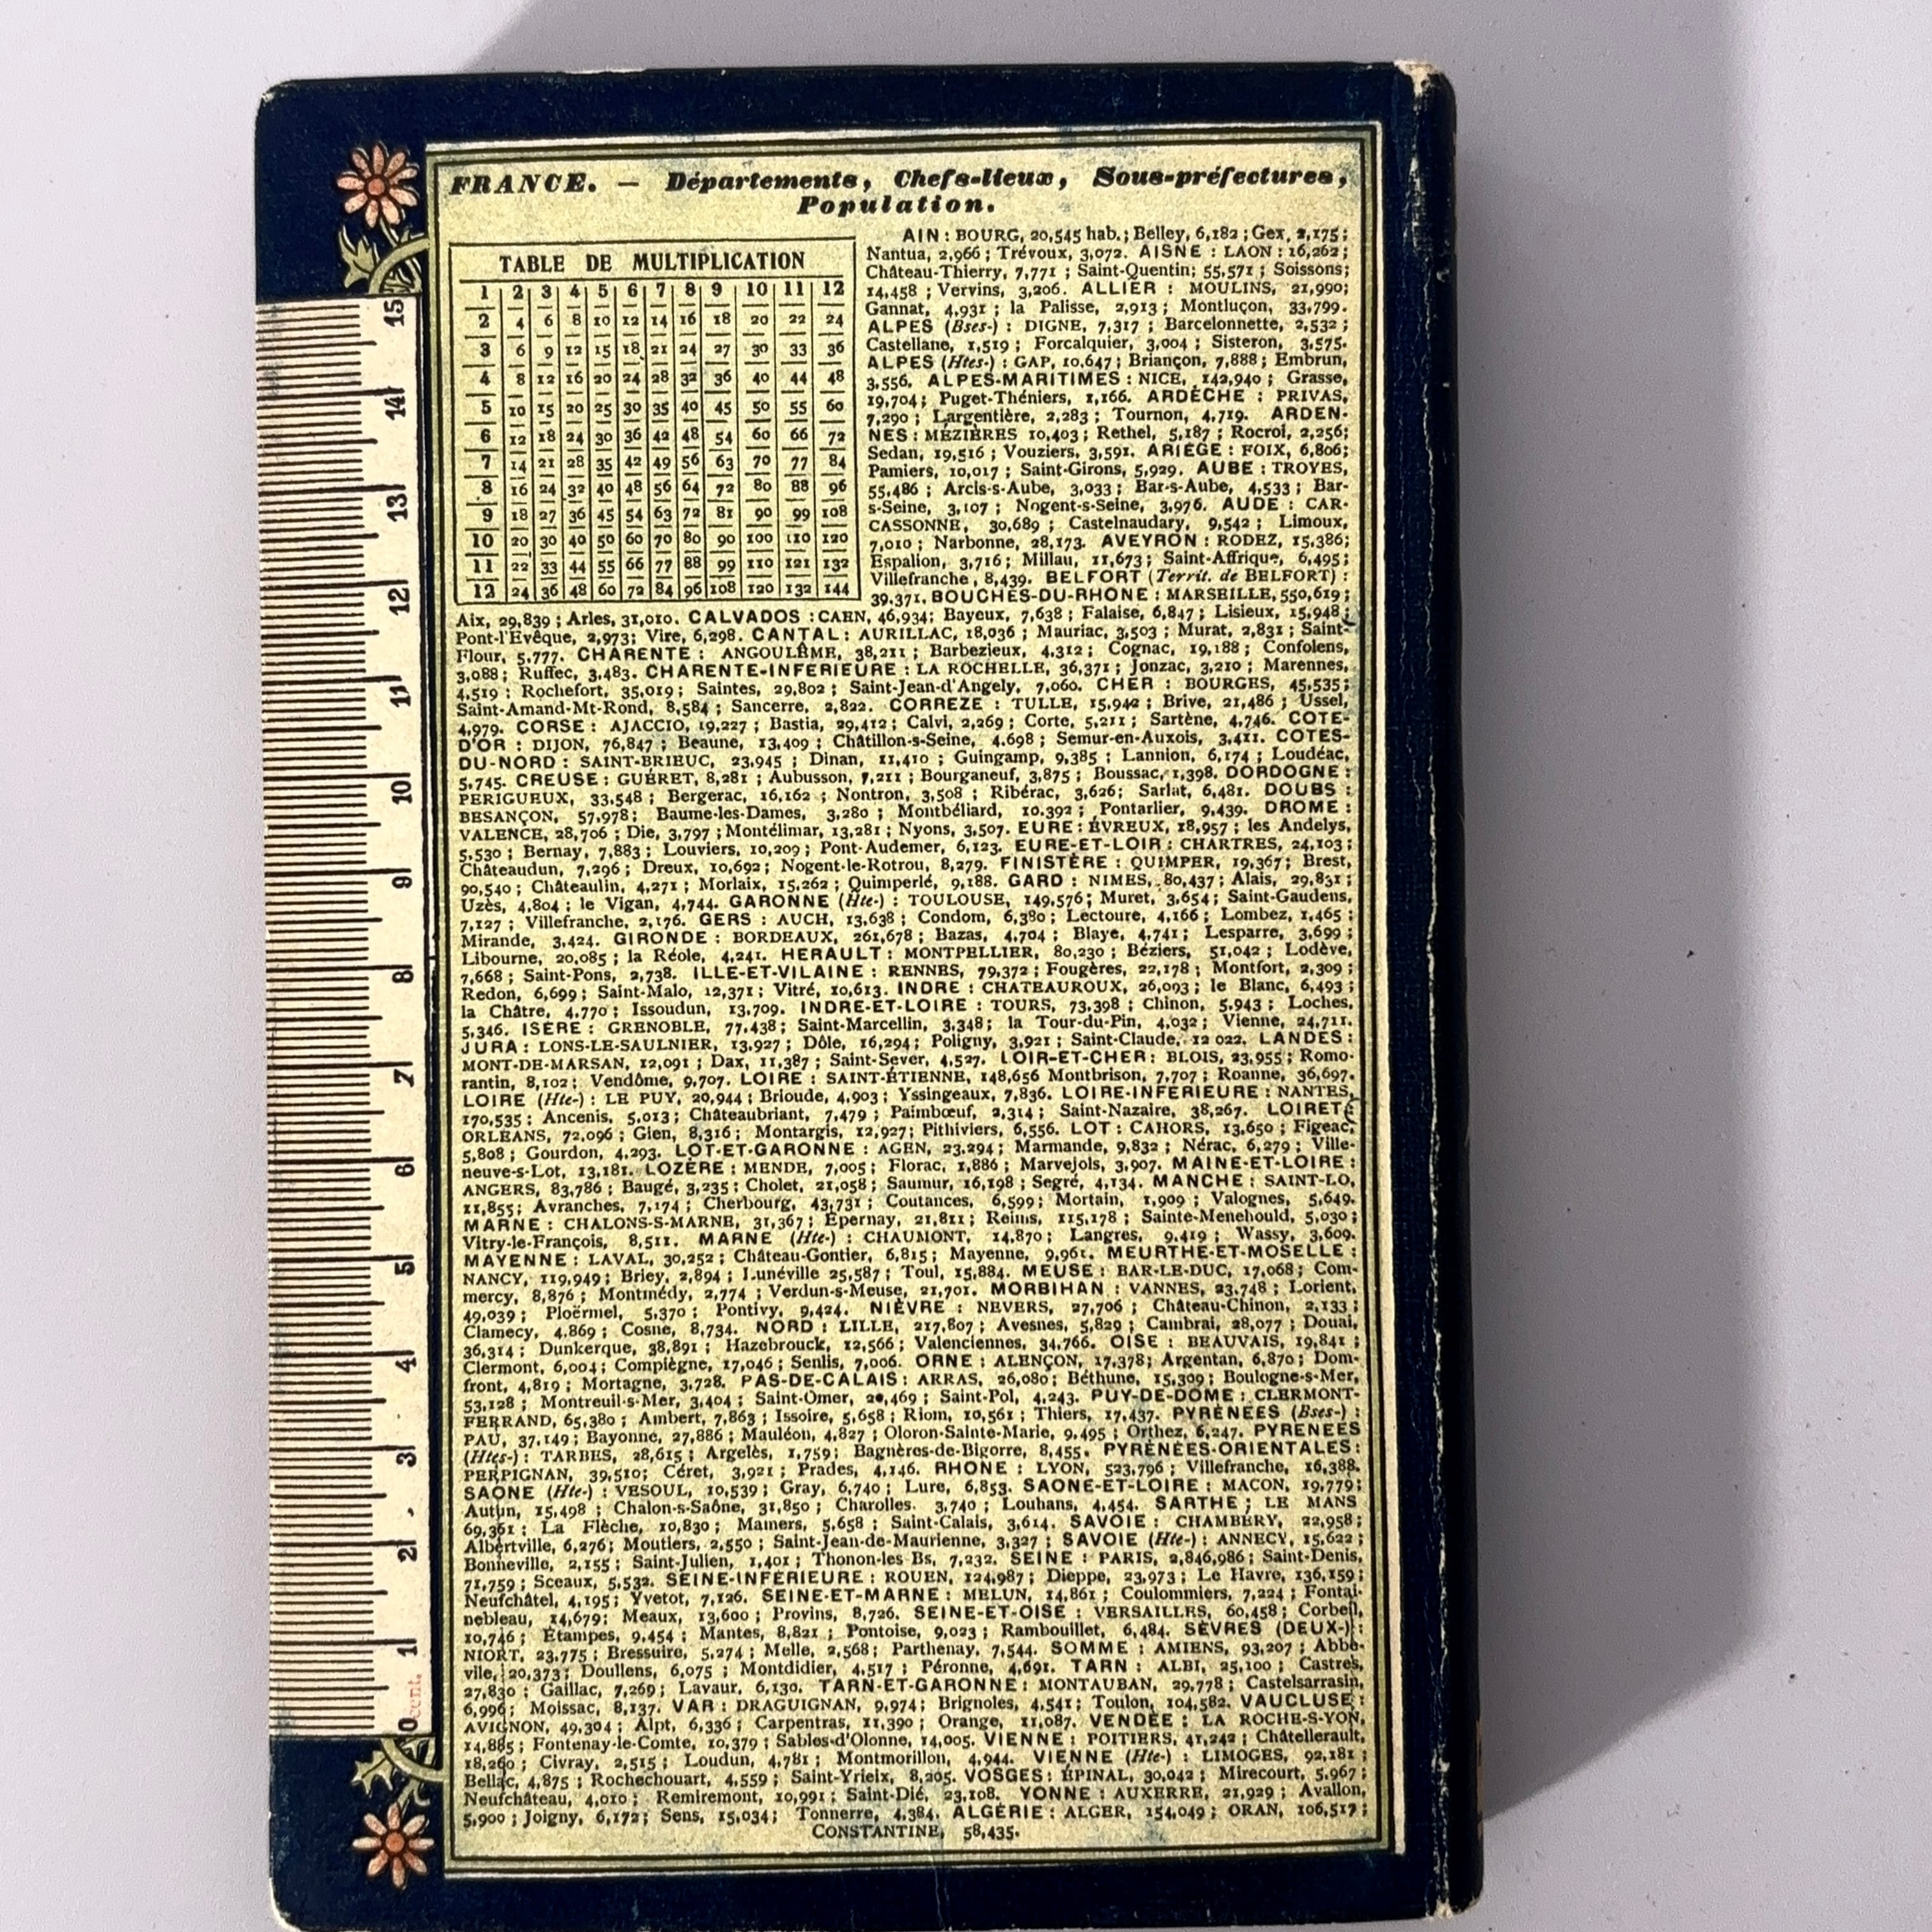 FRANCE. — Départements, Chefs-lieux, Sous-préfectures,
Population.
TABLE DE MULTIPLICATION
1 2 3 4 5 6 7 8 9 10 11 12
2 4 6 8 10 12 14 16 18 20 22 24
3 6 9 12 15 18 21 24 27 30 33 36
4 8 12 16 20 24 28 32 36 40 44 48
5 10 15 20 25 30 35 40 45 50 55 60
6 12 18 24 30 36 42 48 54 60 66 72
7 14 21 28 35 42 49 56 63 70 77 84
8 16 24 32 40 48 56 64 72 80 88 96
9 18 27 36 45 54 63 72 81 90 99 108
10 20 30 40 50 60 70 80 90 100 110 120
11 22 33 44 55 66 77 88 99 110 121 132
12 24 36 48 60 72 84 96 108 120 132 144
AIN : BOURG, 20,545 hab.; Belley, 6,182 ; Gex, 2,175;
Nantua, 2,966 ; Trévoux, 3,072. AISNE : LAON : 16,262;
Château-Thierry, 7,771 ; Saint-Quentin; 55,571 ; Soissons;
14,458 ; Vervins, 3,206. ALLIER : MOULINS, 21,990;
Gannat, 4,931 ; la Palisse, 2,913 ; Montluçon, 33,799.
ALPES (Bses-) : DIGNE, 7,317 ; Barcelonnette, 2,532 ;
Castellane, 1,519 ; Forcalquier, 3,004 ; Sisteron, 3,575.
ALPES (Htes-) : GAP, 10,647; Briançon, 7,888 ; Embrun,
3,556. ALPES-MARITIMES : NICE, 142,940 ; Grasse,
19,704; Puget-Théniers, 1,166. ARDÈCHE : PRIVAS,
7,290 ; Largentière, 2,283 ; Tournon, 4,719. ARDEN-
NES : MÉZIÈRES 10,403; Rethel, 5,187 ; Rocroi, 2,256;
Sedan, 19,516 ; Vouziers, 3,591. ARIÉGE : FOIX, 6,806;
Pamiers, 10,017 ; Saint-Girons, 5,929. AUBE : TROYES,
55,486 ; Arcis-s-Aube, 3,033 ; Bar-s-Aube, 4,533 ; Bar-
s-Seine, 3,107 ; Nogent-s-Seine, 3,976. AUDE : CAR-
CASSONNE, 30,689 ; Castelnaudary, 9,542 ; Limoux,
7,010 ; Narbonne, 28,173. AVEYRON : RODEZ, 15,386;
Espalion, 3,716; Millau, 11,673; Saint-Affrique, 6,495;
Villefranche, 8,439. BELFORT (Territ. de BELFORT) :
39,371. BOUCHES-DU-RHONE : MARSEILLE, 550,619 ;
Aix, 29,839 ; Arles, 31,010. CALVADOS : CAEN, 46,934; Bayeux, 7,638 ; Falaise, 6,847 ; Lisieux, 15,948 ;
Pont-l'Evêque, 2,973; Vire, 6,298. CANTAL : AURILLAC, 18,036 ; Mauriac, 3,503 ; Murat, 2,831 ; Saint-
Flour, 5,777. CHARENTE : ANGOULÊME, 38,211 ; Barbezieux, 4,312 ; Cognac, 19,188 ; Confolens,
3,088; Ruffec, 3,483. CHARENTE-INFERIEURE : LA ROCHELLE, 36,371 ; Jonzac, 3,210 ; Marennes,
4,519 : Rochefort, 35,019; Saintes, 29,802 ; Saint-Jean-d'Angely, 7,060. CHER : BOURGES, 45,535;
Saint-Amand-Mt-Rond, 8,584 ; Sancerre, 2,822. CORREZE : TULLE, 15,942 ; Brive, 21,486 ; Ussel,
4,979. CORSE : AJACCIO, 19,227 ; Bastia, 29,412; Calvi, 2,269 ; Corte, 5,211 ; Sartène, 4,746. COTE-
D'OR : DIJON, 76,847 ; Beaune, 13,409 ; Châtillon-s-Seine, 4,698 ; Semur-en-Auxois, 3,411. COTES-
DU-NORD : SAINT-BRIEUC, 23,945 ; Dinan, 11,410 ; Guingamp, 9,385 ; Lannion, 6,174 ; Loudéac,
5,745. CREUSE : GUÉRET, 8,281 ; Aubusson, 7,211 ; Bourganeuf, 3,875 ; Boussac, 1,398. DORDOGNE :
PERIGUEUX, 33,548 ; Bergerac, 16,162 ; Nontron, 3,508 ; Ribérac, 3,626; Sarlat, 6,481. DOUBS :
BESANÇON, 57,978; Baume-les-Dames, 3,280 ; Montbéliard, 10,392 ; Pontarlier, 9,439. DROME :
VALENCE, 28,706 ; Die, 3,797 ; Montélimar, 13,281 ; Nyons, 3,507. EURE : ÉVREUX, 18,957 ; les Andelys,
5,530 ; Bernay, 7,883 ; Louviers, 10,209 ; Pont-Audemer, 6,123. EURE-ET-LOIR : CHARTRES, 24,103 ;
Châteaudun, 7,296 ; Dreux, 10,692 ; Nogent-le-Rotrou, 8,279. FINISTÈRE : QUIMPER, 19,367; Brest,
90,540 ; Châteaulin, 4,271 ; Morlaix, 15,262 ; Quimperlé, 9,188. GARD : NIMES, 80,437 ; Alais, 29,831 ;
Uzès, 4,804 ; le Vigan, 4,744. GARONNE (Hte-) : TOULOUSE, 149,576; Muret, 3,654; Saint-Gaudens,
7,127 ; Villefranche, 2,176. GERS : AUCH, 13,638 ; Condom, 6,380 ; Lectoure, 4,166 ; Lombez, 1,465 ;
Mirande, 3,424. GIRONDE : BORDEAUX, 261,678 ; Bazas, 4,704 ; Blaye, 4,741 ; Lesparre, 3,699 ;
Libourne, 20,085 ; la Réole, 4,241. HERAULT : MONTPELLIER, 80,230 ; Béziers, 51,042 ; Lodève,
7,668 ; Saint-Pons, 2,738. ILLE-ET-VILAINE : RENNES, 79,372 ; Fougères, 22,178 ; Montfort, 2,309 ;
Redon, 6,699 ; Saint-Malo, 12,371 ; Vitré, 10,613. INDRE : CHATEAUROUX, 26,093 ; le Blanc, 6,493 ;
la Châtre, 4,770 ; Issoudun, 13,709. INDRE-ET-LOIRE : TOURS, 73,398 ; Chinon, 5,943 ; Loches,
5,346. ISÈRE : GRENOBLE, 77,438; Saint-Marcellin, 3,348; la Tour-du-Pin, 4,032 ; Vienne, 24,711.
JURA : LONS-LE-SAULNIER, 13,927 ; Dôle, 16,294 ; Poligny, 3,921 ; Saint-Claude, 12 022. LANDES :
MONT-DE-MARSAN, 12,091 ; Dax, 11,387 ; Saint-Sever, 4,527. LOIR-ET-CHER : BLOIS, 23,955 ; Romo-
rantin, 8,102 ; Vendôme, 9,707. LOIRE : SAINT-ÉTIENNE, 148,656 Montbrison, 7,707 ; Roanne, 36,697.
LOIRE (Hte-) : LE PUY, 20,944 ; Brioude, 4,903 ; Yssingeaux, 7,836. LOIRE-INFERIEURE : NANTES,
170,535 : Ancenis, 5,013 ; Châteaubriant, 7,479 ; Paimbœuf, 2,314 ; Saint-Nazaire, 38,267. LOIRET :
ORLEANS, 72,096 ; Gien, 8,316 ; Montargis, 12,927; Pithiviers, 6,556. LOT : CAHORS, 13,650 ; Figeac,
5,808 ; Gourdon, 4,293. LOT-ET-GARONNE : AGEN, 23,294; Marmande, 9,832 ; Nérac, 6,279 ; Ville-
neuve-s-Lot, 13,181. LOZÈRE : MENDE, 7,005 ; Florac, 1,886 ; Marvejols, 3,907. MAINE-ET-LOIRE :
ANGERS, 83,786 ; Baugé, 3,235 ; Cholet, 21,058 ; Saumur, 16,198 ; Segré, 4,134. MANCHE : SAINT-LO,
11,855; Avranches, 7,174 ; Cherbourg, 43,731 ; Coutances, 6,599 ; Mortain, 1,909 ; Valognes, 5,649.
MARNE : CHALONS-S-MARNE, 31,367 ; Epernay, 21,811 ; Reims, 115,178 ; Sainte-Menehould, 5,030 ;
Vitry-le-François, 8,511. MARNE (Hte-) : CHAUMONT, 14,870 ; Langres, 9,419 ; Wassy, 3,609.
MAYENNE : LAVAL, 30,252 ; Château-Gontier, 6,815; Mayenne, 9,961. MEURTHE-ET-MOSELLE :
NANCY, 119,949 ; Briey, 2,894 ; Lunéville 25,587 ; Toul, 15,884. MEUSE : BAR-LE-DUC, 17,068 ; Com-
mercy, 8,876 ; Montmédy, 2,774 ; Verdun-s-Meuse, 21,701. MORBIHAN : VANNES, 23,748 ; Lorient,
49,039 ; Ploërmel, 5,370 ; Pontivy, 9,424. NIÈVRE : NEVERS, 27,706 ; Château-Chinon, 2,133 ;
Clamecy, 4,869 ; Cosne, 8,734. NORD : LILLE, 217,807 ; Avesnes, 5,829 ; Cambrai, 28,077 ; Douai,
36,314 ; Dunkerque, 38,891 ; Hazebrouck, 12,566 ; Valenciennes, 34,766. OISE : BEAUVAIS, 19,841 ;
Clermont, 6,004 ; Compiègne, 17,046 ; Senlis, 7,006. ORNE : ALENÇON, 17,378; Argentan, 6,870 ; Dom-
front, 4,819 ; Mortagne, 3,728. PAS-DE-CALAIS : ARRAS, 26,080 ; Béthune, 15,309 ; Boulogne-s-Mer,
53,128 ; Montreuil-s-Mer, 3,404 ; Saint-Omer, 20,469 ; Saint-Pol, 4,243. PUY-DE-DOME : CLERMONT-
FERRAND, 65,380 ; Ambert, 7,863 ; Issoire, 5,658 ; Riom, 10,561 ; Thiers, 17,437. PYRENEES (Bses-) :
PAU, 37,149 ; Bayonne, 27,886 ; Mauléon, 4,827 ; Oloron-Sainte-Marie, 9,495 ; Orthez, 6,247. PYRENEES
(Htes-) : TARBES, 28,615 ; Argelès, 1,759; Bagnères-de-Bigorre, 8,455. PYRÉNÉES-ORIENTALES :
PERPIGNAN, 39,510; Céret, 3,921 ; Prades, 4,146. RHONE : LYON, 523,796 ; Villefranche, 16,388.
SAONE (Hte-) : VESOUL, 10,539 ; Gray, 6,740 ; Lure, 6,853. SAONE-ET-LOIRE : MACON, 19,779;
Autun, 15,498 ; Chalon-s-Saône, 31,850 ; Charolles. 3,740 ; Louhans, 4,454. SARTHE ; LE MANS
69,361 : La Flèche, 10,830 ; Mamers, 5,658 ; Saint-Calais, 3,614. SAVOIE : CHAMBERY, 22,958 ;
Albertville, 6,276; Moutiers, 2,550 ; Saint-Jean-de-Maurienne, 3,327 ; SAVOIE (Hte-) : ANNECY, 15,622 ;
Bonneville, 2,155 ; Saint-Julien, 1,401 ; Thonon-les Bs, 7,232. SEINE : PARIS, 2,846,986 ; Saint-Denis,
71,759 ; Sceaux, 5,532. SEINE-INFÉRIEURE : ROUEN, 124,987; Dieppe, 23,973 ; Le Havre, 136,159 ;
Neufchâtel, 4,195 ; Yvetot, 7,126. SEINE-ET-MARNE : MELUN, 14,861 ; Coulommiers, 7,224 ; Fontai-
nebleau, 14,679; Meaux, 13,600 ; Provins, 8,726. SEINE-ET-OISE : VERSAILLES, 60,458 ; Corbeil,
10,746 ; Étampes, 9,454 ; Mantes, 8,821 ; Pontoise, 9,023 ; Rambouillet, 6,484. SÈVRES (DEUX-) :
NIORT, 23,775 ; Bressuire, 5,274 ; Melle, 2,568 ; Parthenay, 7,544. SOMME : AMIENS, 93,207 ; Abbe-
vile, 20,373; Doullens, 6,075 ; Montdidier, 4,517 ; Péronne, 4,691. TARN : ALBI, 25,100 ; Castres,
27,830 ; Gaillac, 7,269 ; Lavaur, 6,130. TARN-ET-GARONNE : MONTAUBAN, 29,778 ; Castelsarrasin,
6,996 ; Moissac, 8,137. VAR : DRAGUIGNAN, 9,974 ; Brignoles, 4,541 ; Toulon, 104,582. VAUCLUSE :
AVIGNON, 49,304 ; Alpt, 6,336 ; Carpentras, 11,390 ; Orange, 11,087. VENDÉE : LA ROCHE-S-YON,
14,885 ; Fontenay-le-Comte, 10,379 ; Sables-d'Olonne, 14,005. VIENNE : POITIERS, 41,242 ; Châtellerault,
18,260 ; Civray, 2,515 ; Loudun, 4,781 ; Montmorillon, 4,944. VIENNE (Hte-) : LIMOGES, 92,181 ;
Bellac, 4,875 ; Rochechouart, 4,559 ; Saint-Yrieix, 8,205. VOSGES : ÉPINAL, 30,042 ; Mirecourt, 5,967 ;
Neufchâteau, 4,010 ; Remiremont, 10,991 ; Saint-Dié, 23,108. YONNE : AUXERRE, 21,929 ; Avallon,
5,900 ; Joigny, 6,172 ; Sens, 15,034; Tonnerre, 4,384. ALGÉRIE : ALGER, 154,049 ; ORAN, 106,517 ;
CONSTANTINE, 58,435.
15
14
13
12
11
10
9
8
7
6
5
4
3
2
1
0 cent.